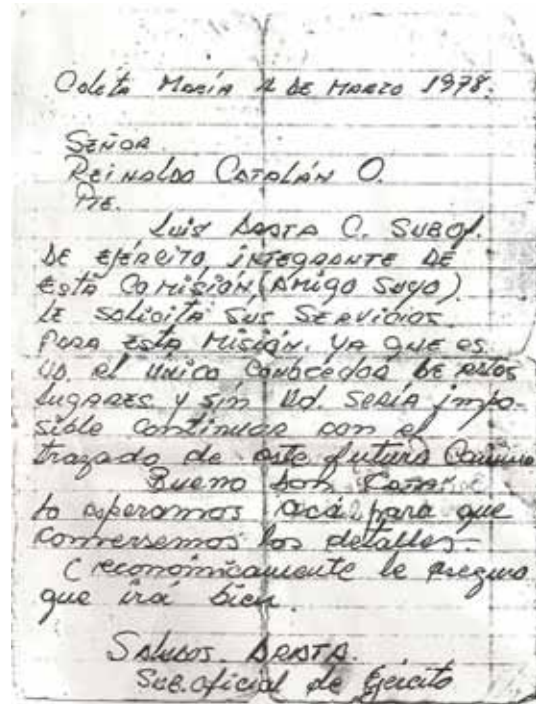 Caleta María 4 DE MARZO 1978.
SEÑOR
REINALDO CATALÁN O.
PTE.
Luis ARATA C. SUBOf.
DE EJÉRCITO, INTEGRANTE DE
ESTA COMISIÓN (AMIGO SUYO)
LE SOLICITA SUS SERVICIOS
PARA ESTA MISIÓN. YA QUE ES
UD. el ÚNICO CONOCEDOR DE ESTOS
LUGARES Y SIN Ud. SERÍA impo-
sible continuar con el
trazado de este futuro Camino
Bueno DON
lo esperamos acá para que
conversemos los detalles.
(económicamente le aseguro
que irá bien.
SALUDOS. ARATA.
Sub.oficial de Ejército